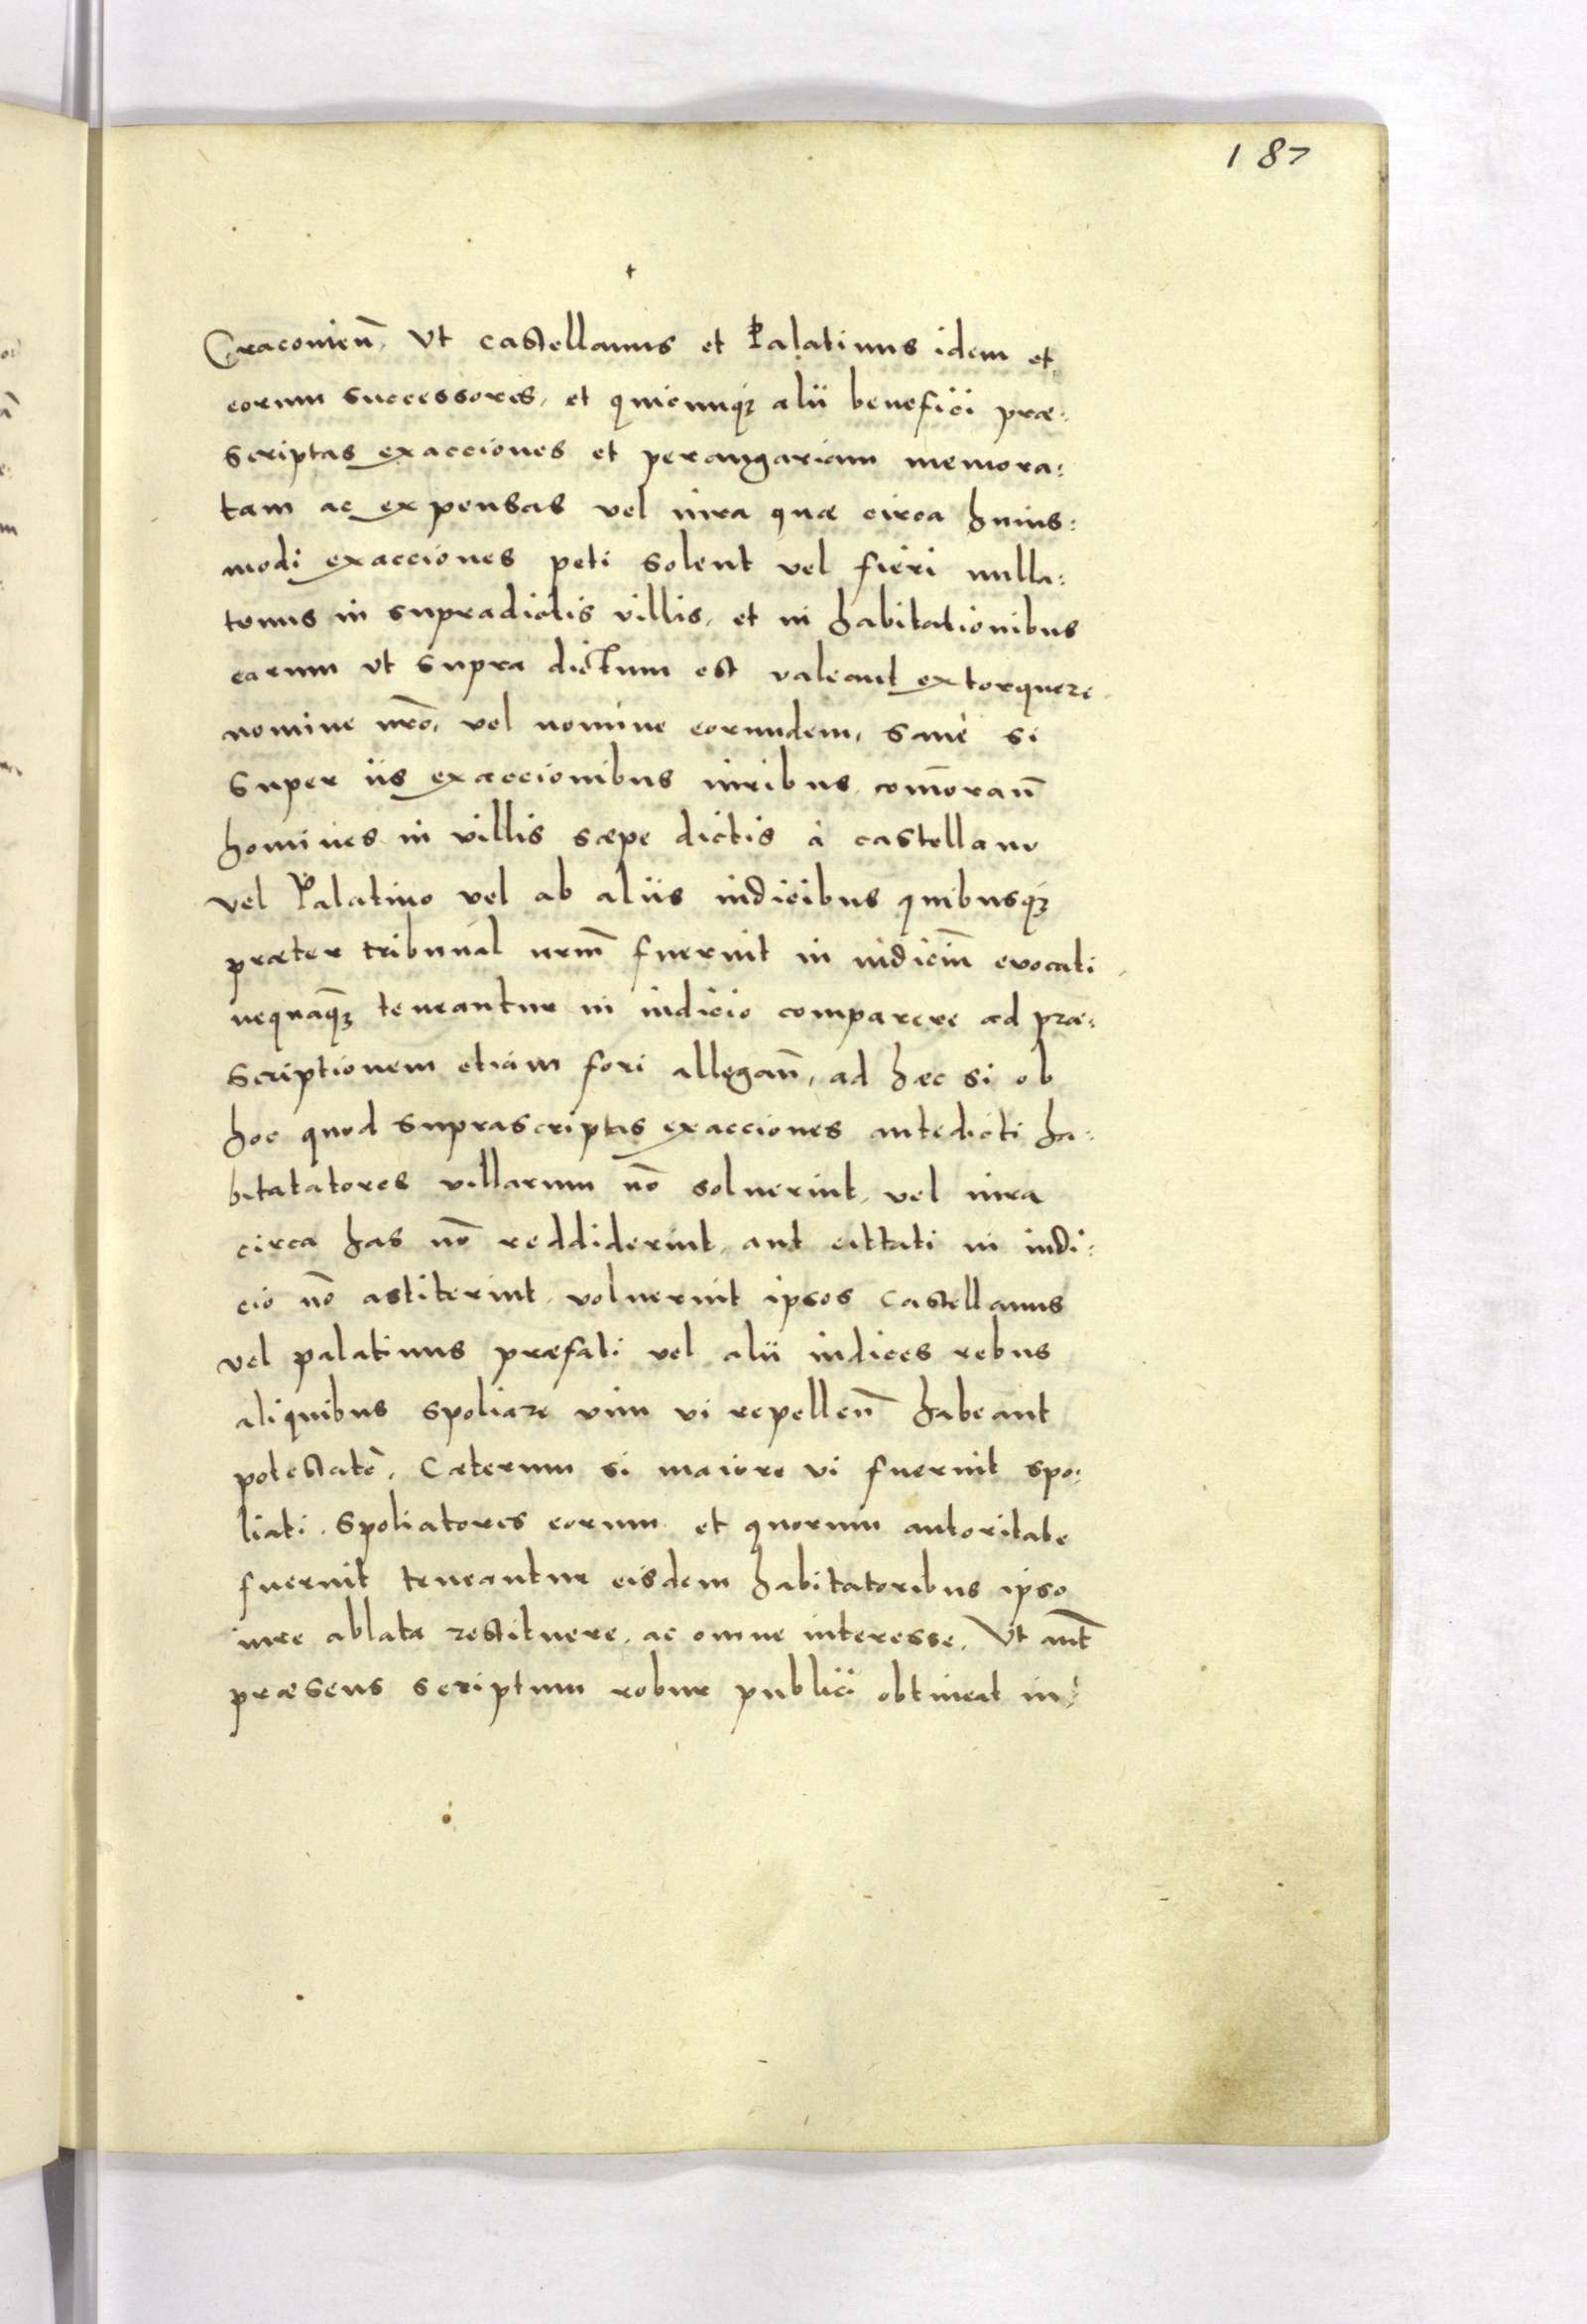 187
Cracovień, Ut castellanus et Palatinus idem et
eorum successores, et quicunqȝ alii beneficii præ:
scriptas exacciones et perangariam memora:
tam ac expensas vel iura quæ circa huius:
modi exacciones peti solent vel fieri nulla:
tenus in supradictis villis, et in habitationibus
earum ut supra dictum est valeant extorquere
nomine nr̃o, vel nomine eorundem, sanè si
super iis exaccionibus iuribus com̃oran̄
homines in villis sæpe dictis à castellano
vel Palatino vel ab aliis iudicibus quibusqȝ
præter tribunal nrm̃ fuerint in iudiciũ evocati
nequaqȝ teneantur in iudicio comparere ad præ:
scriptionem etiam fori allegan̄, ad hæc si ob
hoc quod suprascriptas exacciones antedicti ha:
bitatatores villarum nõ solverint, vel iura
circa has nõ reddiderint, aut cittati in iudi:
cio nõ astiterint, voluerint ipsos castellanus
vel palatinus præfati vel alii iudices rebus
aliquibus spoliare vim vi repellen̄ habeant
potestatẽ, Cæterum si maiore vi fuerint spo:
liati, spoliatores eorum et quorum autoritate
fuerint teneantur eisdem habitatoribus ipso
iure ablata restituere, ac omne interesse, Ut aut̃
præsens scriptum robur publici obtineat in: